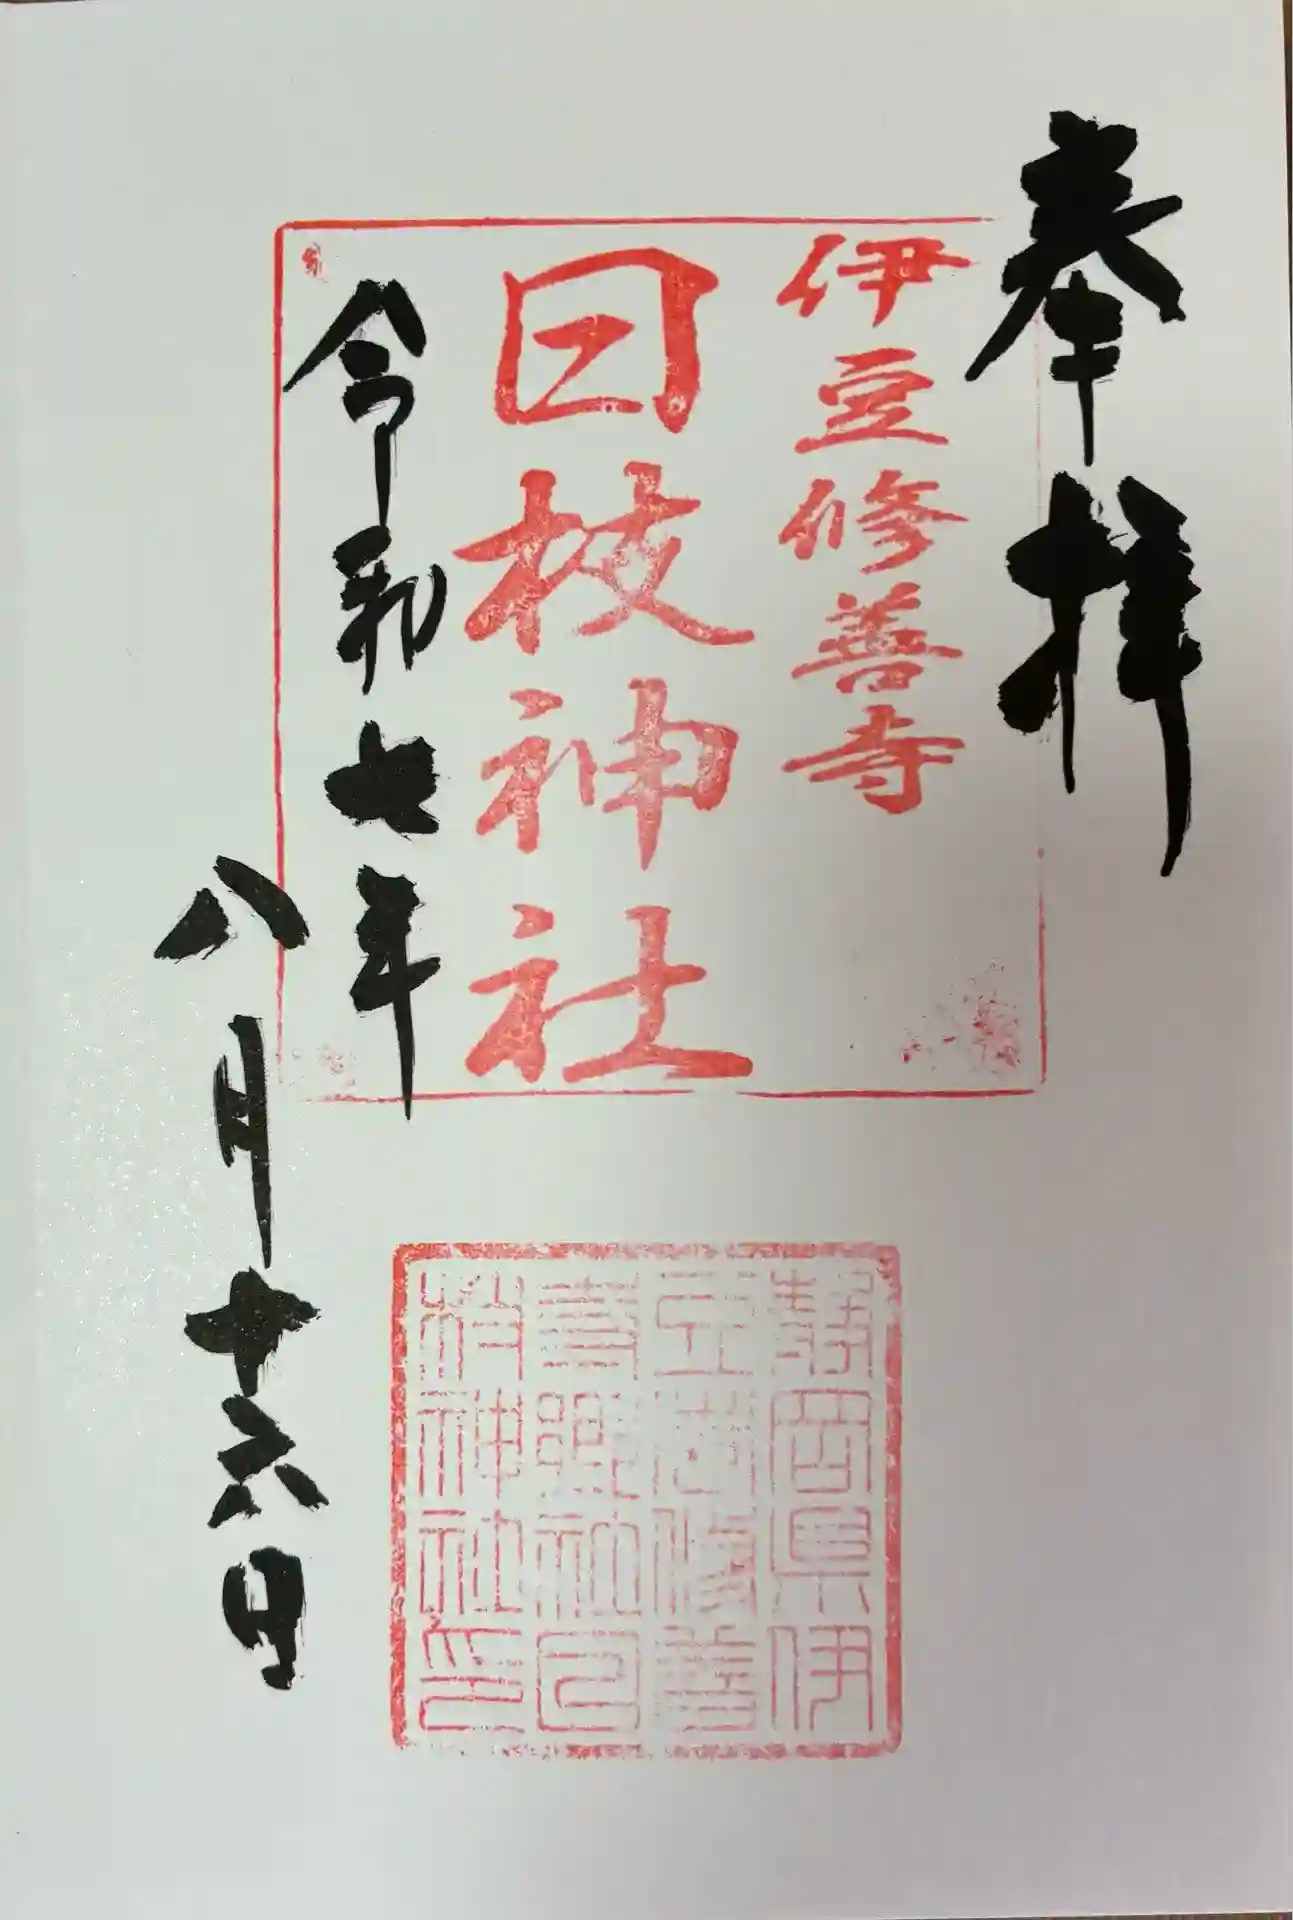 奉拝
伊豆修善寺
日枝神社
令和七年
八月十六日
静岡県伊
豆
修善
社
神社印